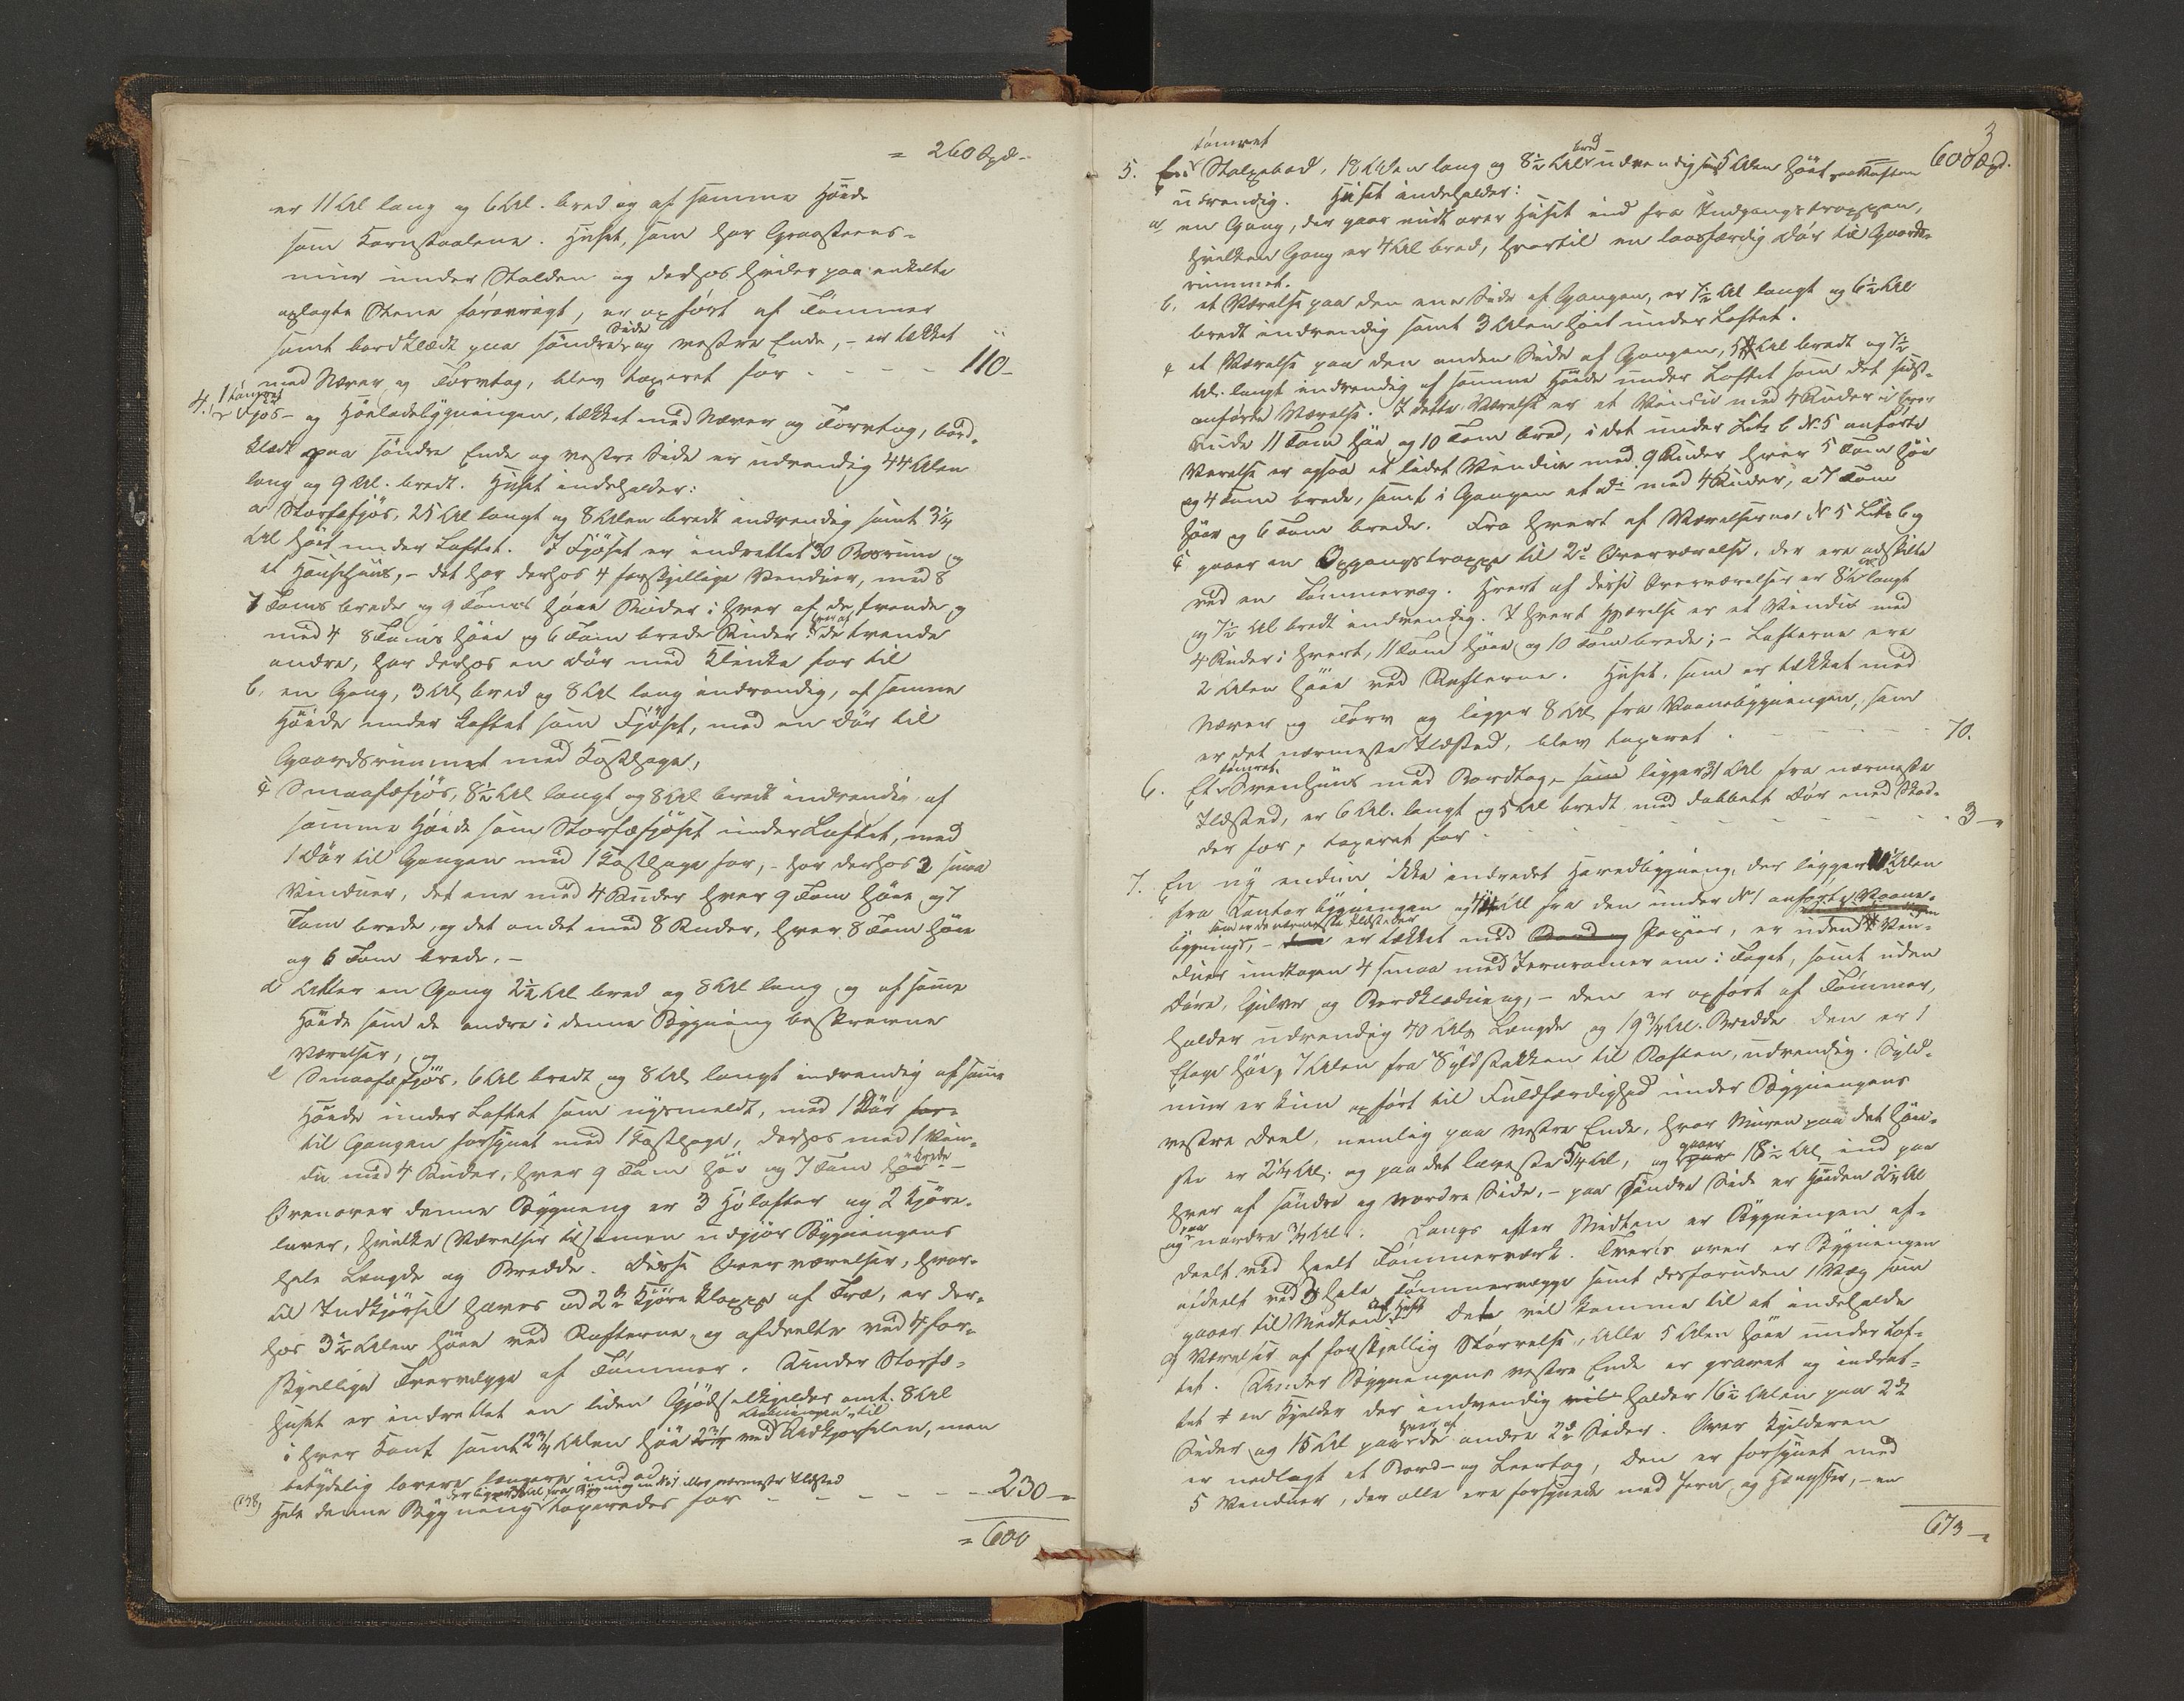 = 260 Spd. -
er 11 Al lang og 6 Al. bred og af samme Höide
som Kornstaalene. Huset, som har Graasteens-
muur under Stalden og derhos hviler paa enkelte
oplagte Stene forøvrigt, er opført af Tømmer
samt bordklædt paa søndre Side og vestre Ende, - er tækket
med Næver og Torvtag, blev taxeret for - - - - 110 -
4. 1 tømret Fjös- og Höeladebygningen, tækket med Næver og Torvtag, bord-
klædt paa søndre Ende og vestre Side er udvendig 44 Alen
lang og 9 Al. bredt. Huset indeholder:
a Storfæfjös, 25 Al langt og 8 Alen bredt indvendig samt 3 1/4
Al höit under Loftet. I Fjöset er indrettet 30 Baasrum og
et , - det har derhos 4 forskjellige Vinduer, med 8
7 Toms brede og 9 Toms höie Ruder i hver af de tvende og
med 4 8 Toms höie og 6 Tom brede Ruder i hver af de tvende
andre, har derhos en Dör med Klinke for til
b. en Gang, 3 Al bred og 8 Al lang indvendig, af samme
Höide under Loftet som Fjöset, med en Dör til
Gaardsrummet med Kasthage,
c Smaafæfjös, 8 1/2 Al langt og 8 Al bredt indvendig, af
samme Höide som Storfæfjöset under Loftet, med
1 Dör til Gangen med 1 Kasthage for, - har derhos 2 smaa
Vinduer, det ene med 4 Ruder hver 9 Tom höie og 7
Tom brede, og det andet med 8 Ruder, hver 8 Tom höie
og 6 Tom brede, -
d Atter en Gang 2 1/2 Al bred og 8 Al lang og af samme
Höide som de andre i denne Bygning beskrevne
Værelser, og
e Smaafæfjös, 6 Al bredt og 8 Al langt indvendig af samme
Höide under Loftet som nysmeldt, med 1 Dör for
til Gangen forsynet med 1 Kasthage, derhos med 1 Vin-
du med 4 Ruder, hver 9 Tom höi og 7 Tom brede -
Ovenover denne Bygning er 3 Hölofter og 2 Kjöre-
laver, hvilke Værelser tilsammen udgjör Bygningens
hele Længde og Bredde. Disse Overværelser, hvor-
til Indkjørsel haves ad 2de Kjöreklopper af Træ, er der-
hos 3 1/2 Alen höie ved Rafterne, og afdeelte ved 4 for-
skjellige Tvervægge af Tømmer. Under Storfæ-
huset er indrettet en liden Gjödselkjelder omt. 8 Al
i hver Kant samt 2 3/4 Alen höi ved Aabningen til Udkjørselen, men
betydelig lavere længere ind ad.
Hele denne Bygning taxeredes for - - - - 230 -
= 600
3
600 Spd.
5. En tømret Stolpebod, 18 Alen lang og 8 1/2 Al bred udvendig samt 5 Alen höit paa Raften
udvendig. Huset indeholder:
a, en Gang, der gaar midt over Huset ind fra Indgangstrappen,
hvilken Gang er 4 Al bred, hvortil en laasfærdig Dör til Gaards-
rummet.
b. et Værelse paa den ene Side af Gangen, er 7 1/2 Al langt og 6 1/2 Al
bredt indvendig samt 3 Alen höit under Loftet.
c et Værelse paa den anden Side af Gangen, 5 Al bredt og 7 1/2
Al. langt indvendig af samme Höide under Loftet som det sidst-
anførte Værelse. I dette Værelse er et Vindue med 4 Ruder i hver
Rude 11 Tom höi og 10 Tom bred, i det under Litr b No 5 anførte
Værelse er ogsaa et lidet Vindue med 9 Ruder hver 5 Tom höie
og 4 Tom brede, samt i Gangen et do med 4 Ruder, a 7 Tom
höie og 6 Tom brede. Fra hvert af Værelserne No 5 Litr b og
c gaaer en Opgangstrappe til 2de Overværelse, der ere adskilte
ved en Tømmervæg. Hvert af disse Overværelser er 8 1/2 Al langt
og 7 1/2 Al bredt indvendig. I hvert Værelse er et Vindue med
4 Ruder i hvert, 11 Tom höie og 10 Tom brede; - Lofterne ere
2 Alen höie ved Rafterne. Huset, som er tækket med
Næver og Torv og ligger 8 Al fra Vaanebygningen, som
er det nærmeste Ildsted, blev taxeret - - - - 70.
6. Et tømret Svenhuus med Bordtag, som ligger 31 Al fra nærmeste
Ildsted, er 6 Al. langt og 5 Al bredt med dobbelt Dör med
der for, taxeret for - - - - 3 -
7. En ny endnu ikke indredet Hovedbygning, der ligger Alen
fra Contorbygningen og Al fra den under No 1 anførte Vaane-
bygning, - som er de nærmeste Ildsteder er tækket med Papier, er uden Vin-
duer undtagen 4 smaa med Jernrammer om i Taget, samt uden
Döre, Gulve og Bordklædning, - den er opført af Tømmer,
holder udvendig 40 Als Længde og 19 3/4 Al. Bredde. Den er 1
Etage höi, 7 Alen fra Syldstokken til Raften, udvendig. Syld-
muur er kun opført til Fuldfærdighed under Bygningens
vestre Deel, nemlig paa vestre Ende, hvor Muren paa det höi-
ste er 2 1/4 Al. og paa det laveste 3/4 Al, og gaaer 18 1/2 Al ind paa
hver af søndre og nordre Side, - paa søndre Side er Höiden 2 1/4 Al
og paa nordre 3/4 Al. Langs efter Midten er Bygningen af-
deelt ved heelt Tømmerværk. Tvers over er Bygningen
afdeelt ved 3 hele Tømmervægge samt desforuden 1 Væg som
gaaer til Midten af Huset. Det vil komme til at indeholde
9 Værelser af forskjellig Størrelse, Alle 5 Alen höie under Lof-
tet. Under Bygningens vestre Ende er gravet og indret-
tet en Kjelder der indvendig holder 16 1/2 Alen paa 2de
Sider og 15 Al paa hver af de andre 2de Sider. Over Kjelderen
er nedlagt et Bord- og Leertag, den er forsynet med
5 Vinduer, der alle ere forsynede med Jern og Hængsler, - en
673 -